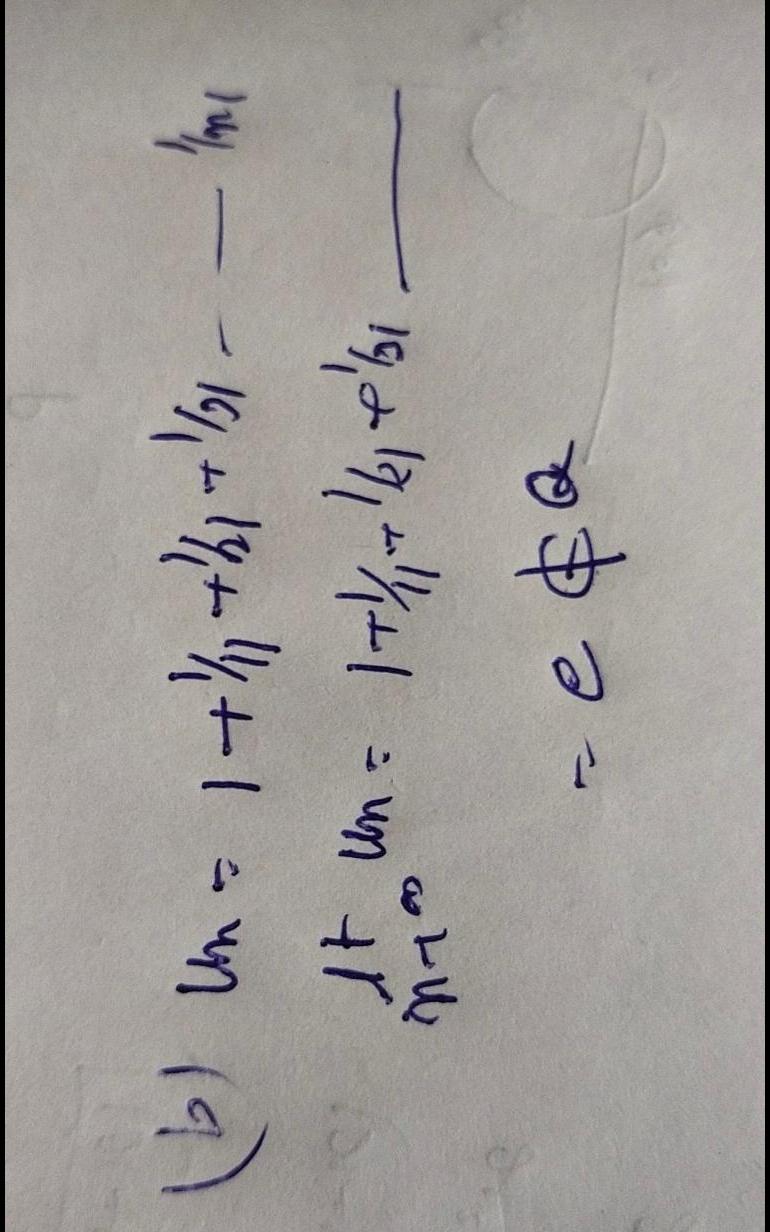 (b) Un = 1 + 1/1! + 1/2! + 1/3! - — 1/n!
lt Un = 1 + 1/1! + 1/2! + 1/3! ——
n→∞
= e ∉ Q